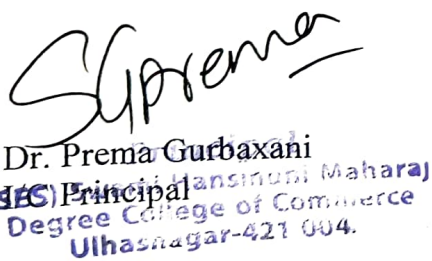 SGprema
Dr. Prema Gurbaxani
I/C Principal
Hansmuni Maharaj
Degree College of Commerce
Ulhasnagar-421 004.